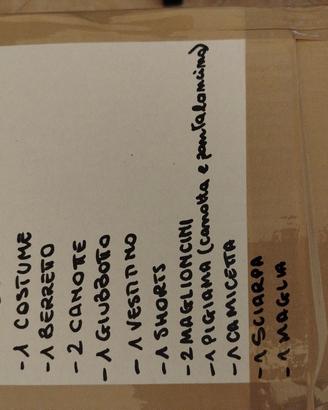 -1 COSTUME
-1 BERRETTO
-2 CANOTTE
-1 GIUBBOTTO
-1 VESTITINO
-1 SHORTS
-2 MAGLIONCINI
-1 PIGIAMA (canotta e pantaloncino)
-1 CAMICETTA
-1 SCIARPA
-1 MAGLIA